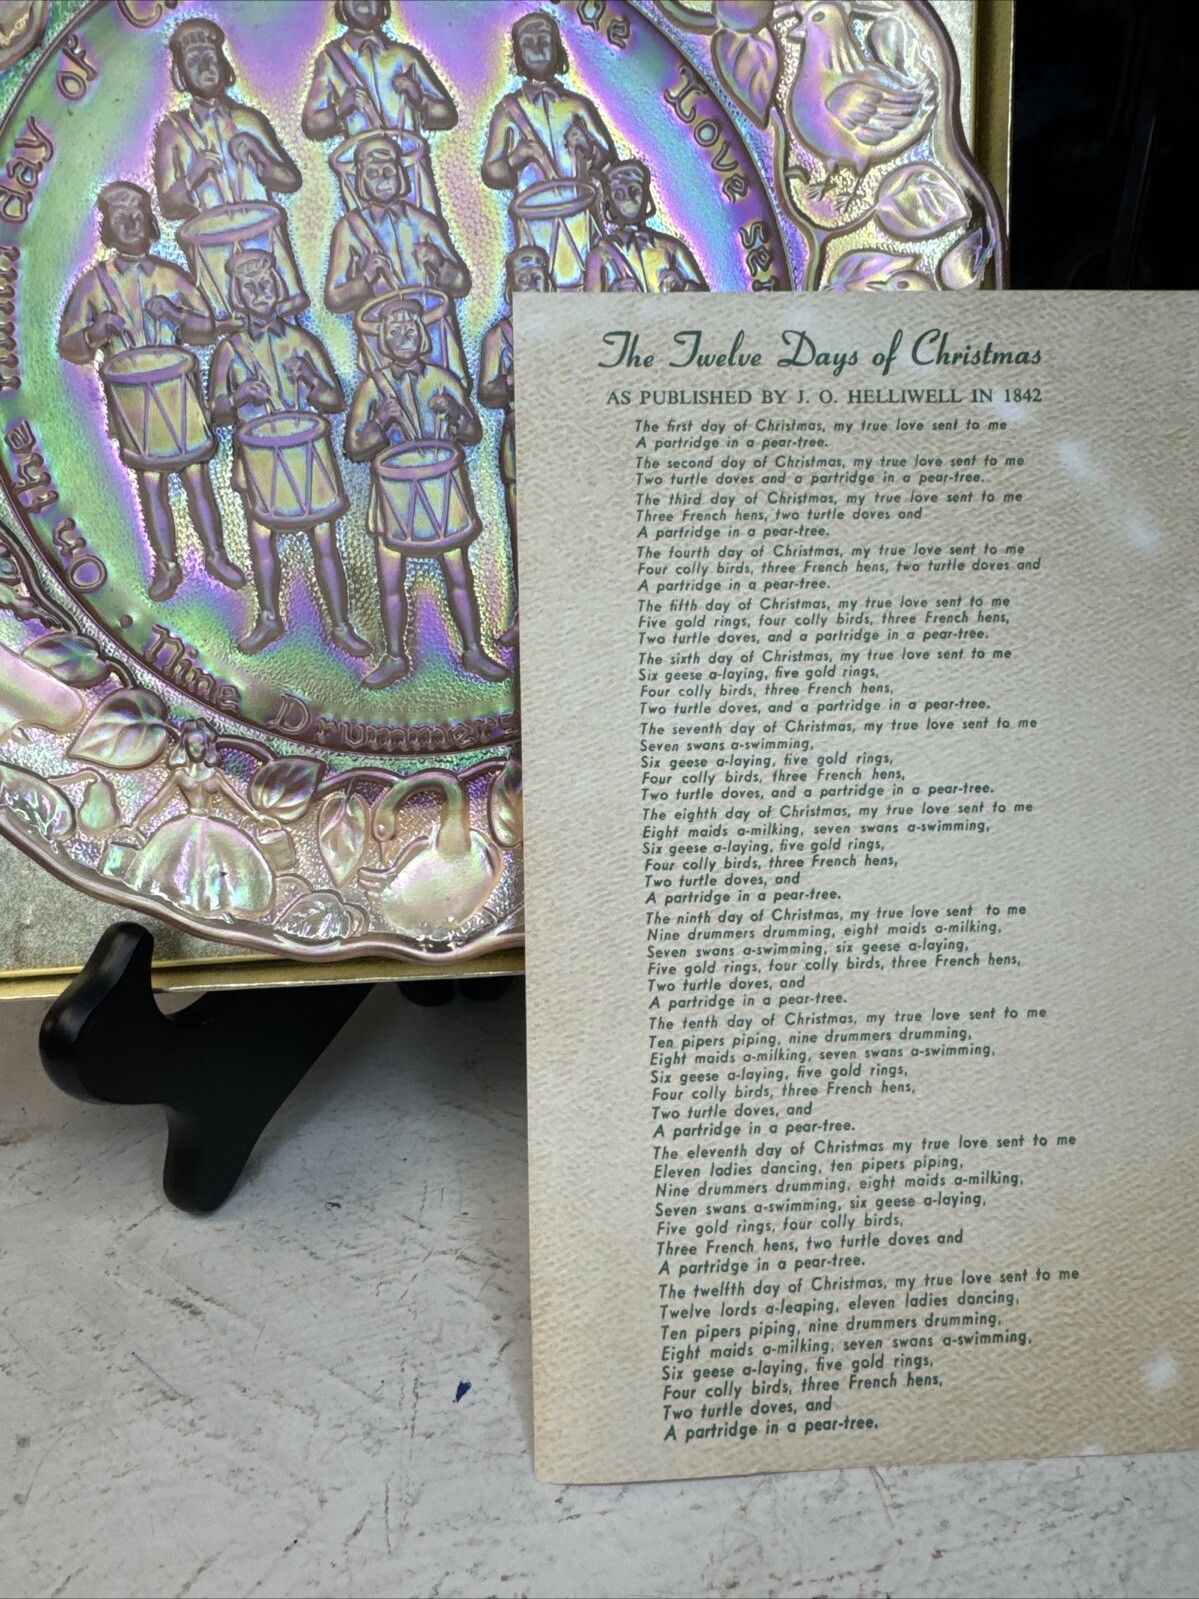 On the
day of
Love
Nine Drummers
The Twelve Days of Christmas
AS PUBLISHED BY J. O. HELLIWELL IN 1842
The first day of Christmas, my true love sent to me
A partridge in a pear-tree.
The second day of Christmas, my true love sent to me
Two turtle doves and a partridge in a pear-tree.
The third day of Christmas, my true love sent to me
Three French hens, two turtle doves and
A partridge in a pear-tree.
The fourth day of Christmas, my true love sent to me
Four colly birds, three French hens, two turtle doves and
A partridge in a pear-tree.
The fifth day of Christmas, my true love sent to me
Five gold rings, four colly birds, three French hens,
Two turtle doves, and a partridge in a pear-tree.
The sixth day of Christmas, my true love sent to me
Six geese a-laying, five gold rings,
Four colly birds, three French hens,
Two turtle doves, and a partridge in a pear-tree.
The seventh day of Christmas, my true love sent to me
Seven swans a-swimming,
Six geese a-laying, five gold rings,
Four colly birds, three French hens,
Two turtle doves, and a partridge in a pear-tree.
The eighth day of Christmas, my true love sent to me
Eight maids a-milking, seven swans a-swimming,
Six geese a-laying, five gold rings,
Four colly birds, three French hens,
Two turtle doves, and
A partridge in a pear-tree.
The ninth day of Christmas, my true love sent to me
Nine drummers drumming, eight maids a-milking,
Seven swans a-swimming, six geese a-laying,
Five gold rings, four colly birds, three French hens,
Two turtle doves, and
A partridge in a pear-tree.
The tenth day of Christmas, my true love sent to me
Ten pipers piping, nine drummers drumming,
Eight maids a-milking, seven swans a-swimming,
Six geese a-laying, five gold rings,
Four colly birds, three French hens,
Two turtle doves, and
A partridge in a pear-tree.
The eleventh day of Christmas my true love sent to me
Eleven ladies dancing, ten pipers piping,
Nine drummers drumming, eight maids a-milking,
Seven swans a-swimming, six geese a-laying,
Five gold rings, four colly birds,
Three French hens, two turtle doves and
A partridge in a pear-tree.
The twelfth day of Christmas, my true love sent to me
Twelve lords a-leaping, eleven ladies dancing,
Ten pipers piping, nine drummers drumming,
Eight maids a-milking, seven swans a-swimming,
Six geese a-laying, five gold rings,
Four colly birds, three French hens,
Two turtle doves, and
A partridge in a pear-tree.